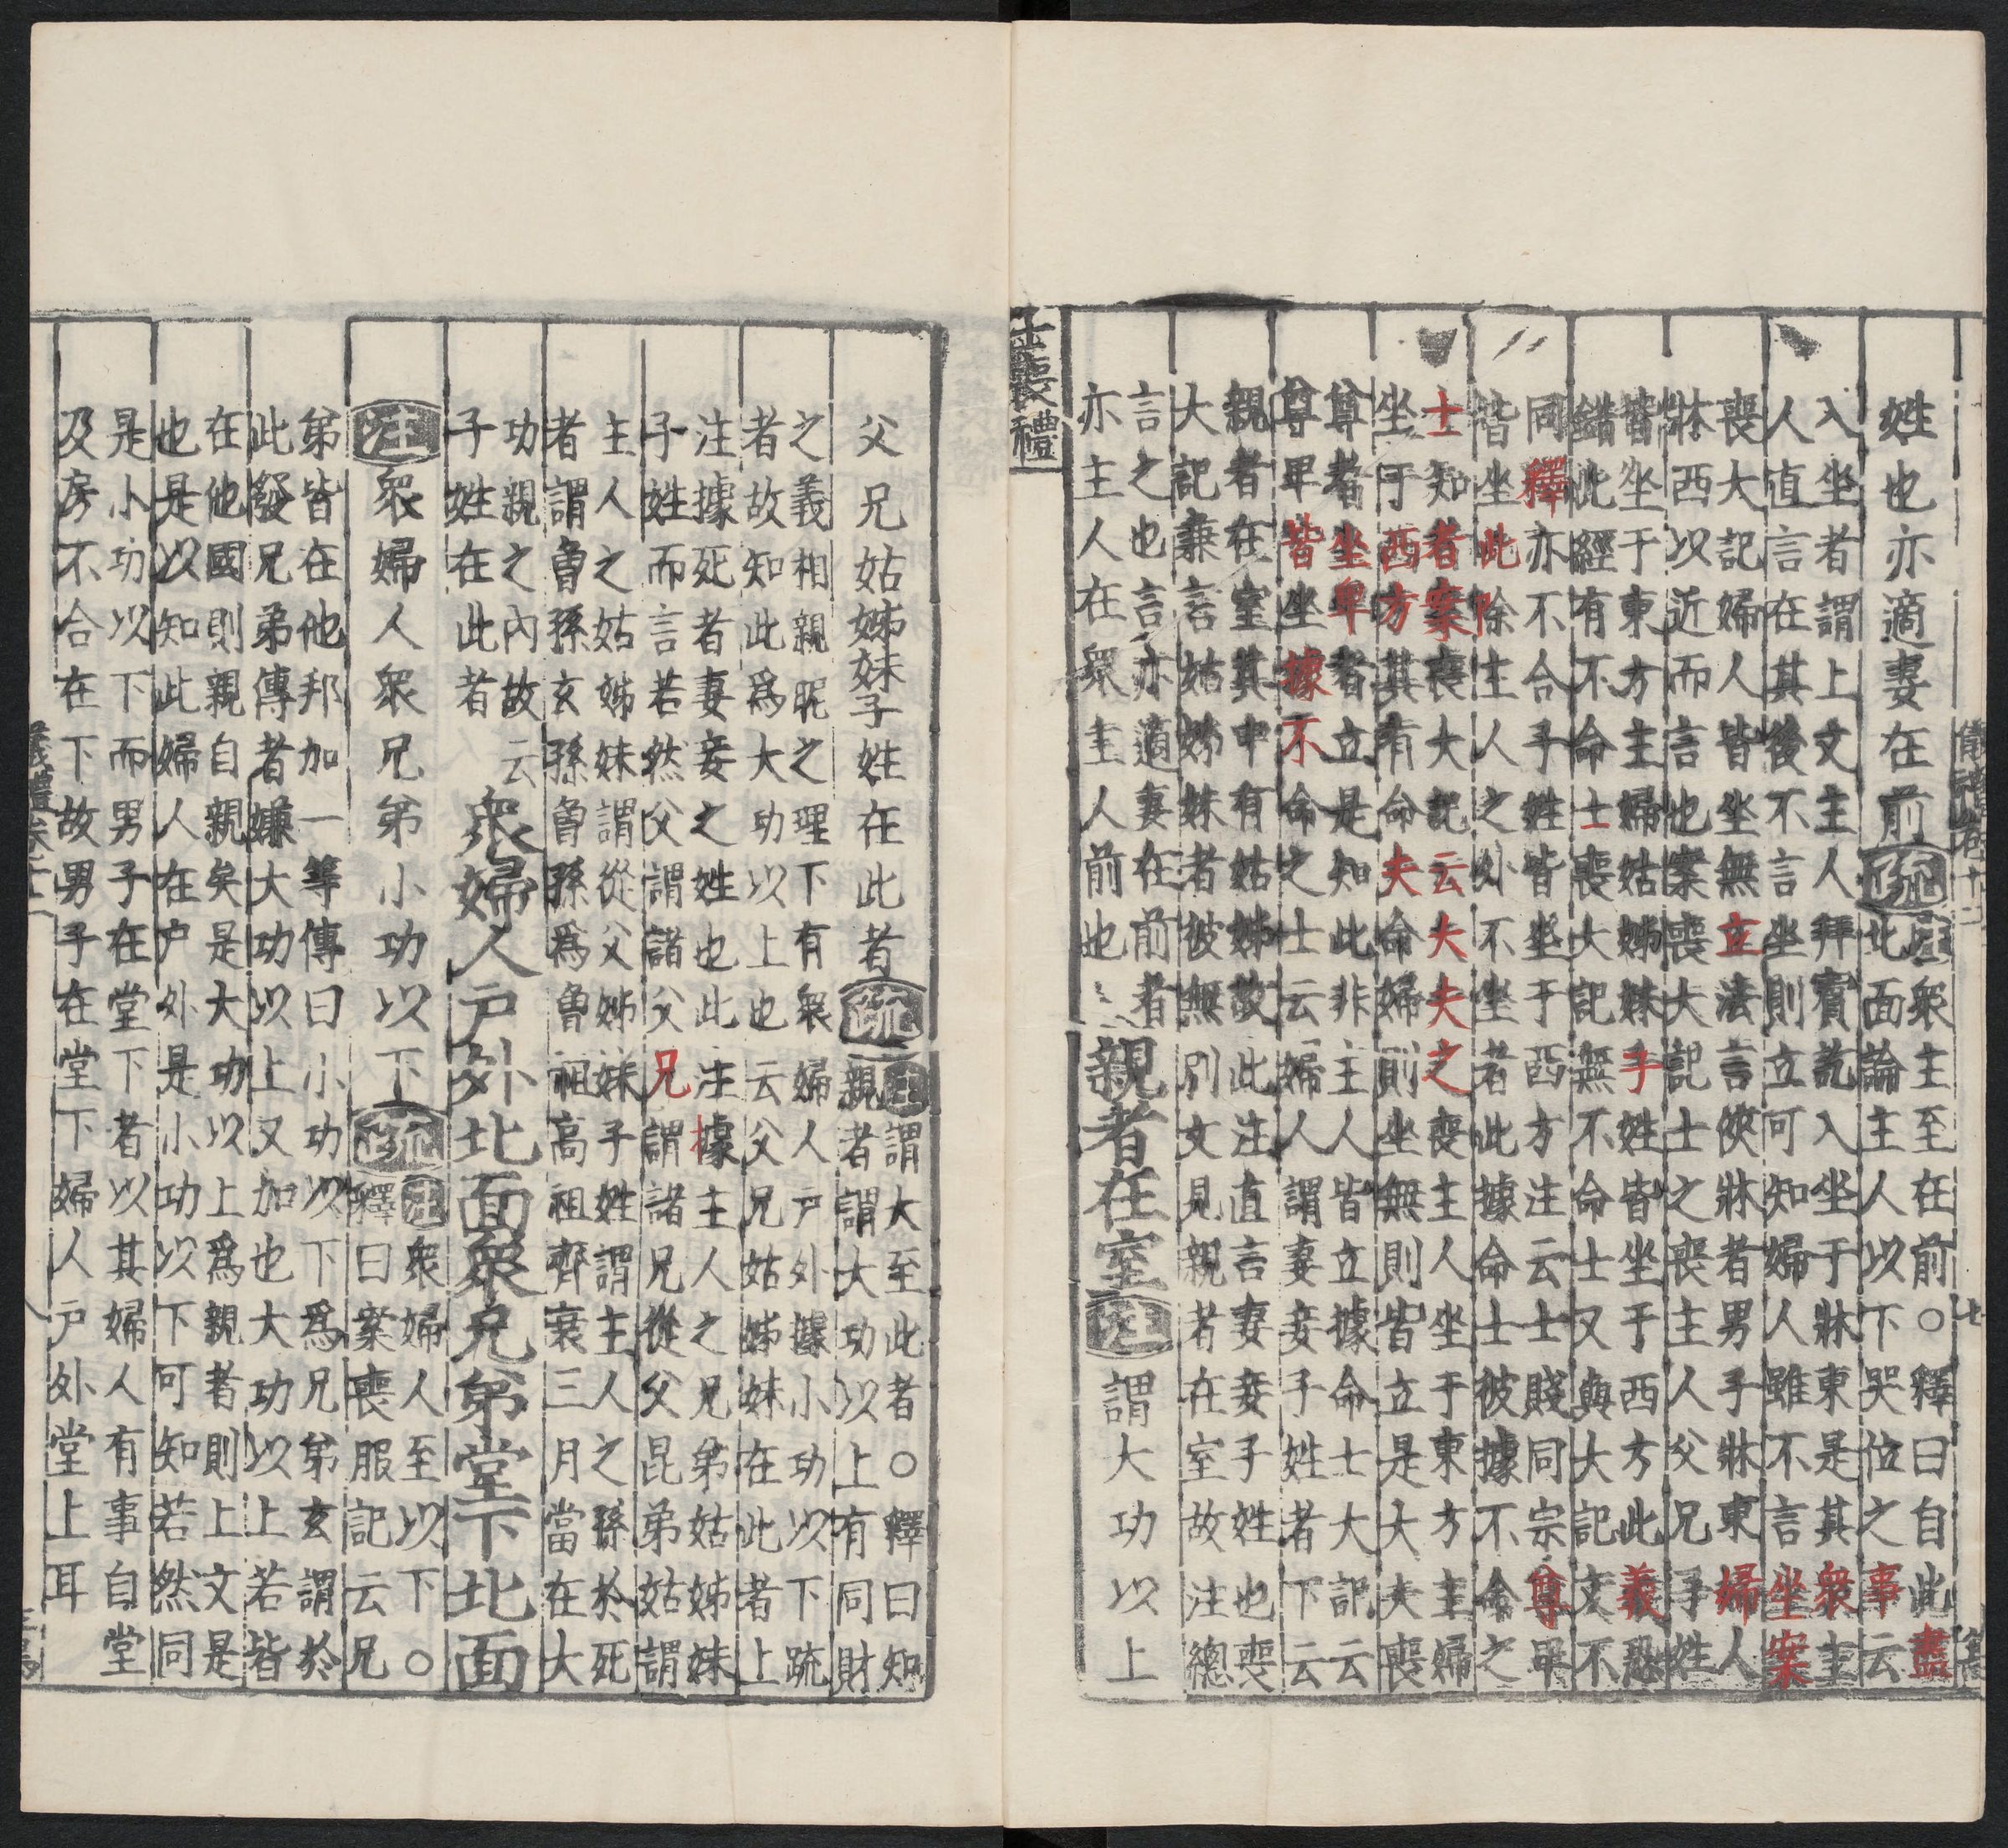 儀禮卷十二
七
姓也亦適妻在前疏注衆主至在前○釋曰自此盡
北面論主人以下哭位之事云
入坐者謂上文主人拜賓訖入坐于牀東是其衆主
人直言在其後不言坐則立可知婦人雖不言坐案
喪大記婦人皆坐無立法言俠牀者男子牀東婦人
牀西以近而言也案喪大記士之喪主人父兄子姓
皆坐于東方主婦姑姊妹子姓皆坐于西方此義恐
錯此經有不命士喪大記無不命士又與大記文不
同釋亦不合子姓皆坐于西方注云士賤同宗尊卑
皆坐此除主人之外不坐者此據命士彼據不命之
士知者案喪大記云夫夫之喪主人坐于東方主婦
坐于西方其有命夫命婦則坐無則皆立是大夫喪
尊者坐卑者立是知此非主人皆立據命士大記云
尊卑皆坐據不命之士云婦人謂妻妾子姓者下云
親者在室其中有姑姊故此注直言妻妾子姓也喪
大記兼言姑姊妹者彼無別文見親者在室故注總
言之也言亦適妻在前者
亦主人在衆主人前也
親者在室注謂大功以上
士喪禮
父兄姑姊妹子姓在此者疏注謂大至此者○釋曰知
親者謂大功以上有同財
之義相親昵之理下有衆婦人戶外據小功以下疏
者故知此爲大功以上也云父兄姑姊妹在此者上
注據死者妻妾之姓也此注據主人之兄弟姑姊妹
子姓而言若然父謂諸父兄謂諸兄從父昆弟姑謂
主人之姑姊妹謂從父姊妹子姓謂主人之孫於死
者謂曾孫玄孫曾孫爲曾祖高祖齊衰三月當在大
功親之內故云
子姓在此者
衆婦人戶外北面衆兄弟堂下北面
注衆婦人衆兄弟小功以下疏注衆婦人至以下○
釋曰案喪服記云兄
弟皆在他邦加一等傳曰小功以下爲兄弟玄謂於
此發兄弟傳者嫌大功以上又加也大功以上若皆
在他國則親自親矣是大功以上爲親者則上文是
也是以知此婦人在戶外是小功以下可知若然同
是小功以下而男子在堂下者以其婦人有事自堂
及房不合在下故男子在堂下婦人戶外堂上耳
儀禮卷十二